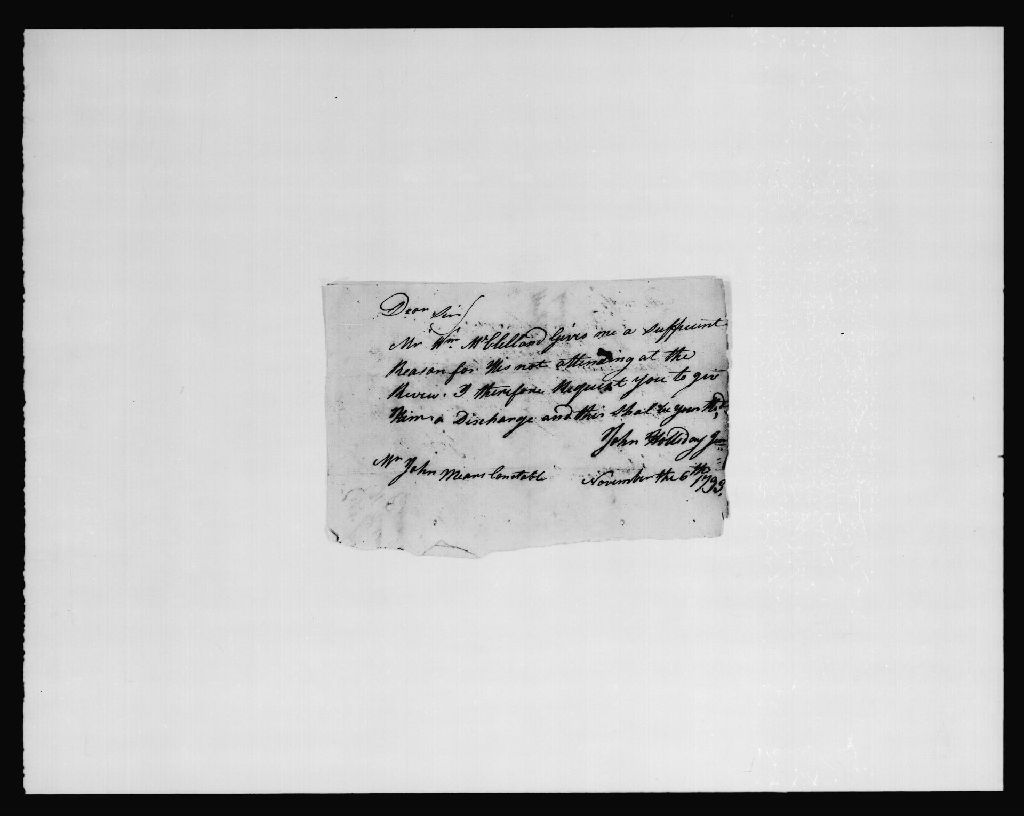 Dear Sir/
Mr Wm. McClelland Gives me a suffecient
Reason for His not attending at the
Revew. I therefore Request you to give
Him a Discharge and this Shal be your
John Holliday Jun
Mr John Means Constable November the 6th 1793